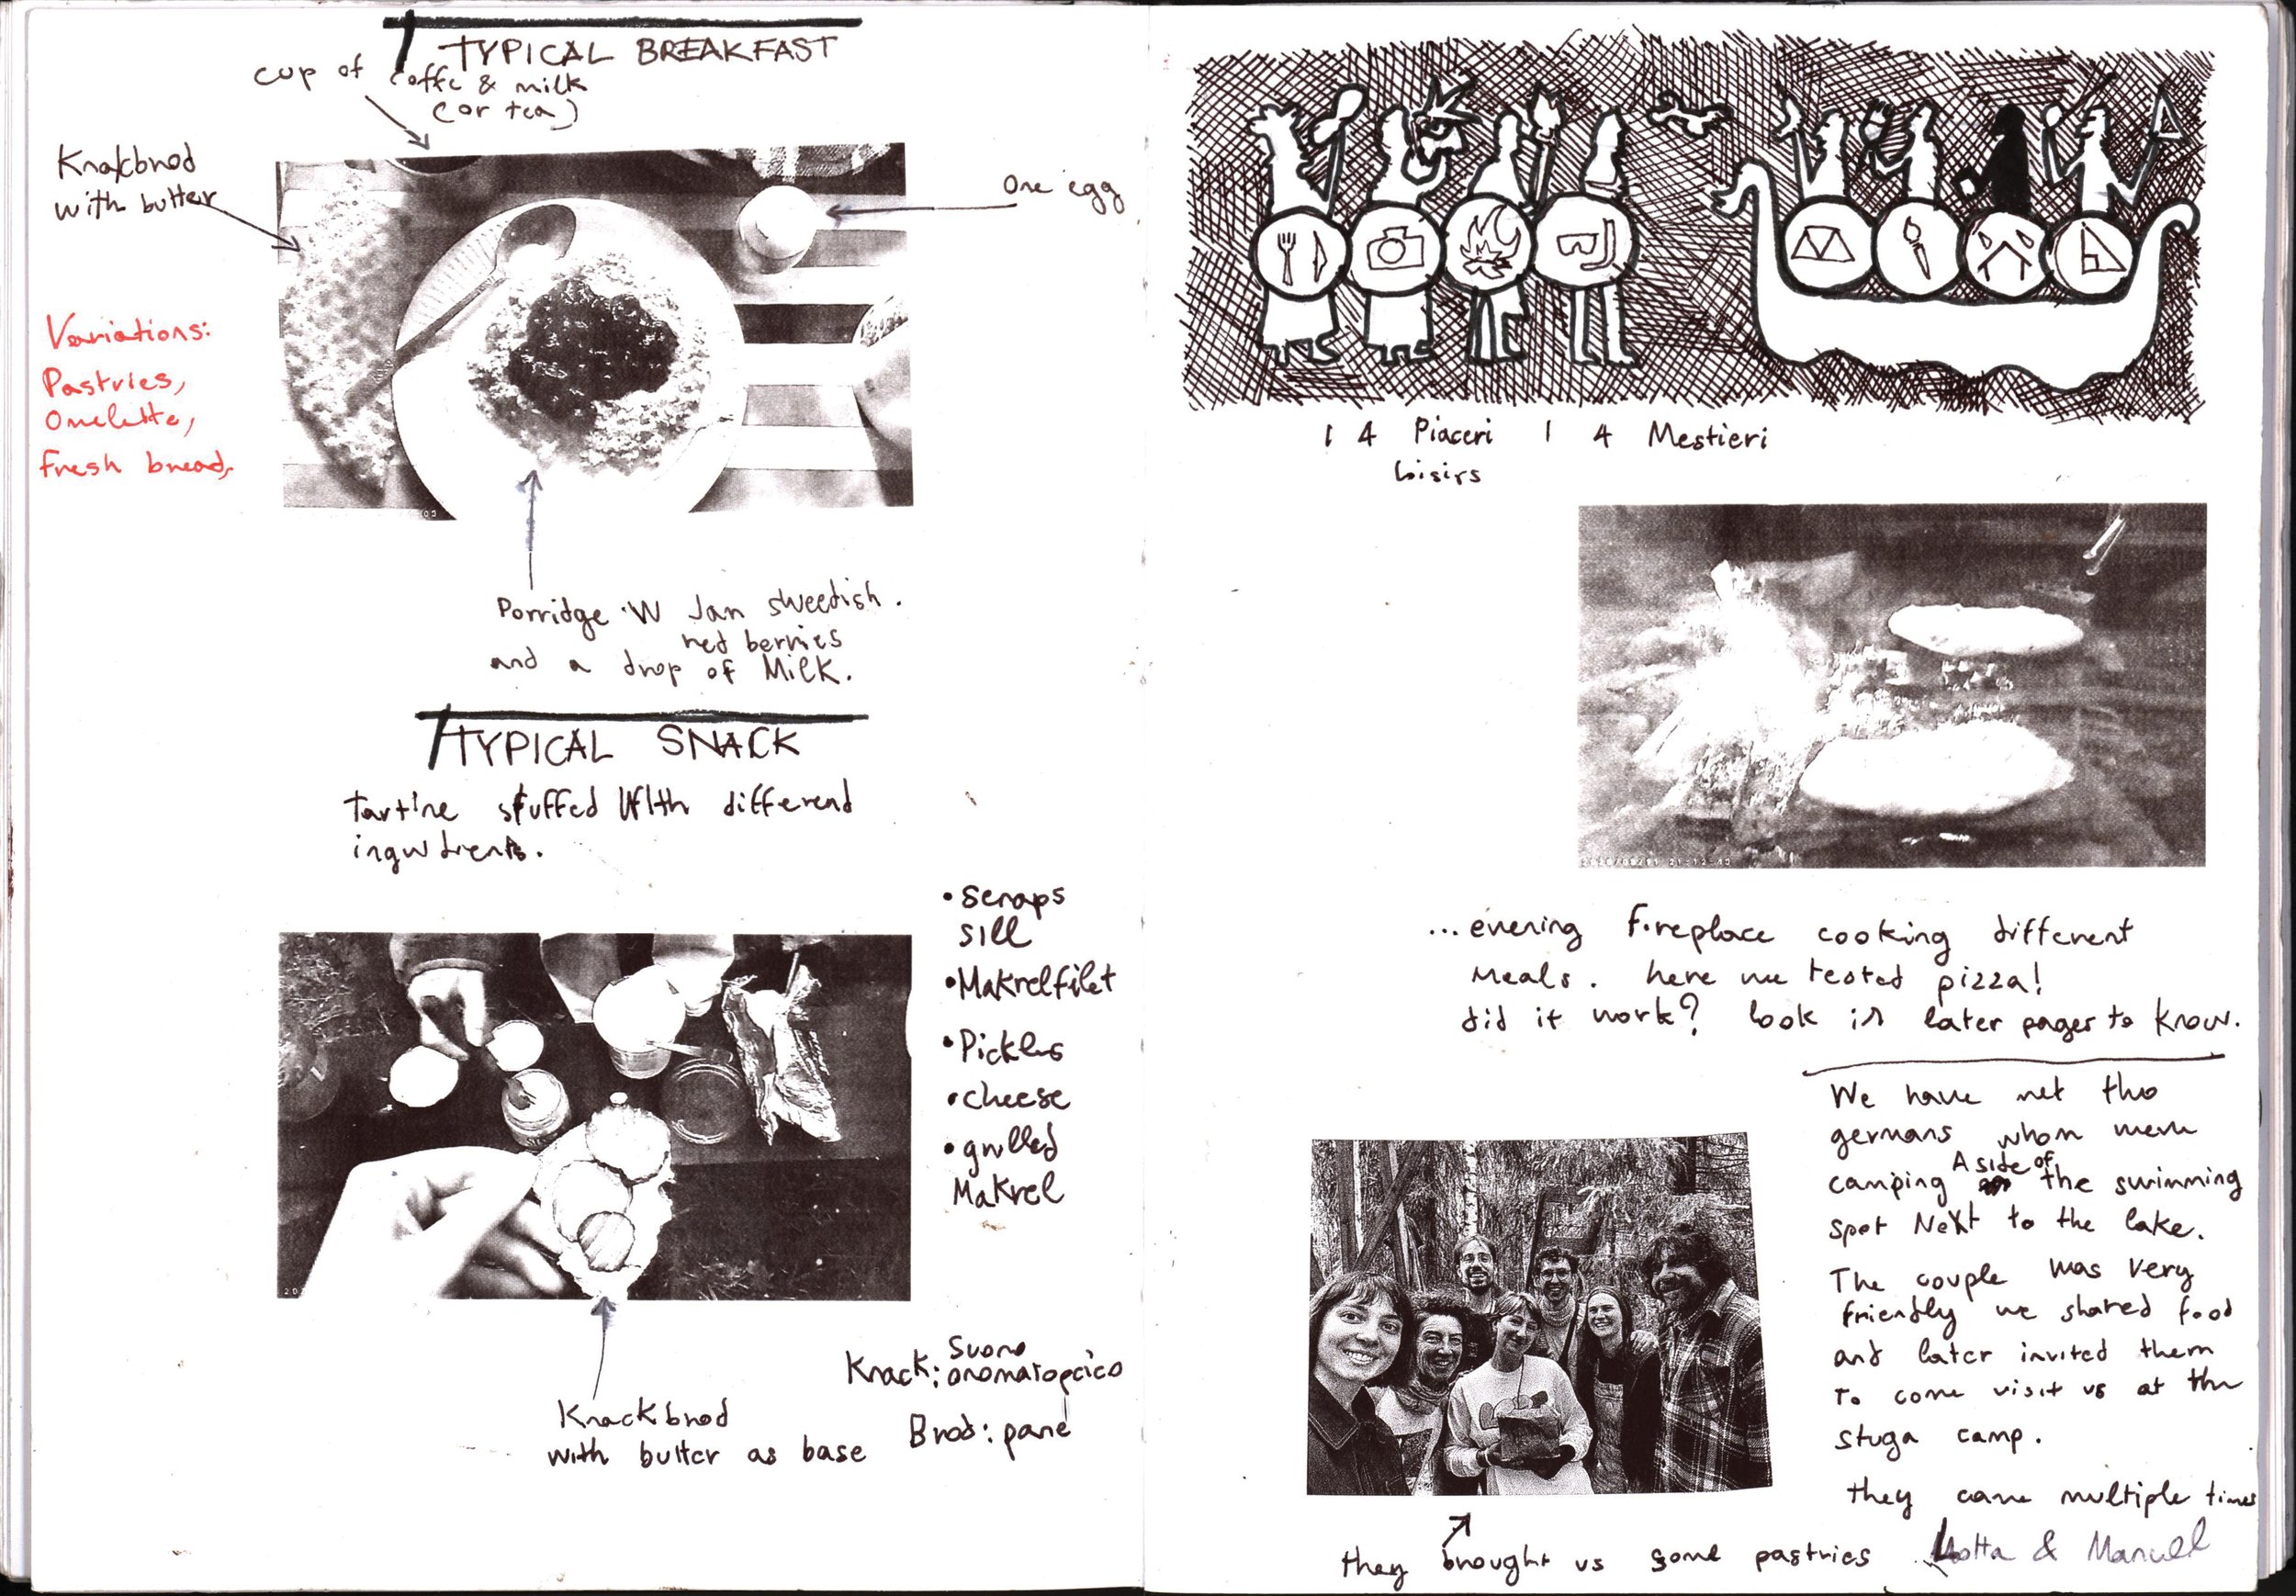 TYPICAL BREAKFAST
cup of coffe & milk
(or tea)
Knakbrod
with butter
one egg
Variations:
Pastries,
Omelette,
fresh bread,
Porridge W Jam sweedish.
red berries
and a drop of Milk.
TYPICAL SNACK
tartine stuffed With differend
• Scraps
sill
• Makrelfilet
• Pickles
• cheese
• grilled
Makrel
Knackbrod
with butter as base
Knack: suono
onomatopeico
Brod: pane
I 4 Piaceri I 4 Mestieri
loisirs
...evening fireplace cooking different
Meals. here we tested pizza!
did it work? look in later pages to know.
We have met two
germans whom were
camping A side of the swimming
spot Next to the lake.
The couple was very
friendly we shared food
and later invited them
To come visit us at the
stuga camp.
they came multiple times
Lotta & Manuel
they brought us some pastries